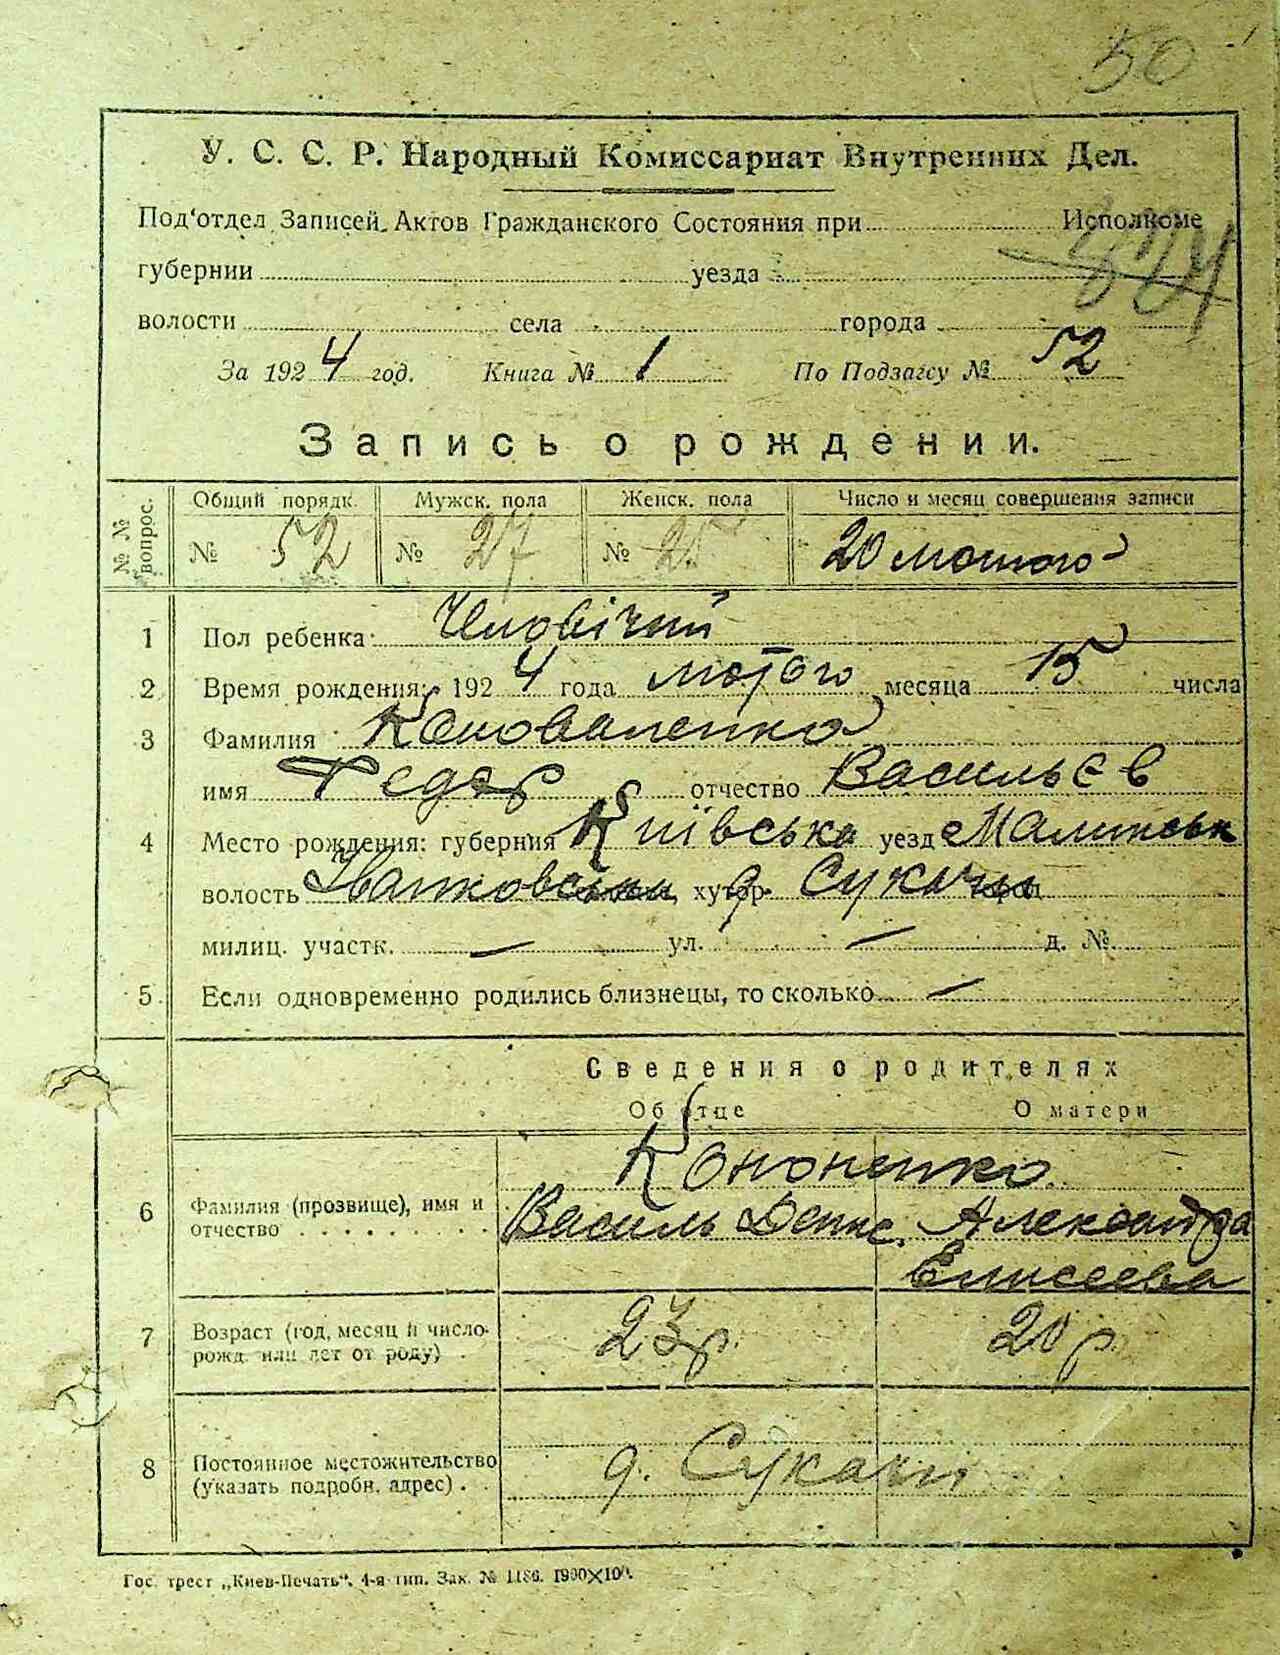 50
У. С. С. Р. Народный Комиссариат Внутренних Дел.
Под'отдел Записей Актов Гражданского Состояния при Исполкоме
губернии уезда 324
волости села города
За 1924 год. Книга № 1 По Подзагсу № 52
Запись о рождении.
№ № вопрос. Общий порядк. Мужск. пола Женск. пола Число и месяц совершения записи
№ 52 № 27 № 25 20 лютого
1 Пол ребенка: Чоловічий
2 Время рождения: 1924 года лютого месяца 15 числа
3 Фамилия Коноваленко
имя Федор отчество Васильєв
4 Место рождения: губерния Київська уезд Малинськ
волость Іванковська, хутор д. Сукачи город
милиц. участк. — ул. — д. №
5 Если одновременно родились близнецы, то сколько —
Сведения о родителях
Об отце О матери
Кононенко
6 Фамилия (прозвище), имя и отчество Василь Денис. Александра
Елисеева
7 Возраст (год, месяц и число рожд. или лет от роду) 23 р. 20 р.
8 Постоянное местожительство (указать подробн. адрес) д. Сукачи
Гос. трест „Киев-Печать“. 4-я тип. Зак. № 1186. 1900×100.